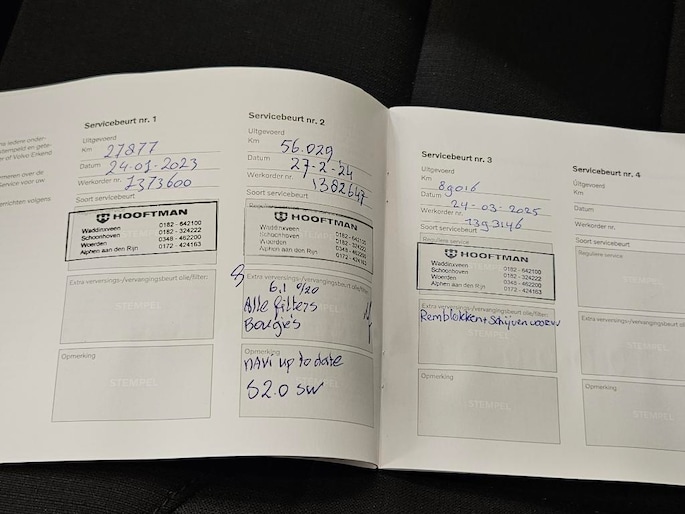 ns iedere onder-
empeld en gete-
er of Volvo Erkend
meren over de
Service voor uw
errichten volgens
Servicebeurt nr. 1
Uitgevoerd
Km 27877
Datum 24-01-2023
Werkorder nr. 1373600
Soort servicebeurt
HOOFTMAN
Waddinxveen 0182 - 642100
Schoonhoven 0182 - 324222
Woerden 0348 - 462200
Alphen aan den Rijn 0172 - 424163
Extra verversings-/vervangingsbeurt olie/filter:
STEMPEL
Opmerking
STEMPEL
Servicebeurt nr. 2
Uitgevoerd
Km 56.029
Datum 27-2-24
Werkorder nr. 1382647
Soort servicebeurt
HOOFTMAN
Waddinxveen 0182 - 642100
Schoonhoven 0182 - 324222
Woerden 0348 - 462200
Alphen aan den Rijn 0172 - 424163
Extra verversings-/vervangingsbeurt olie/filter:
Alle filters
Bougies
Opmerking
NAVi up to date
STEMPEL
S2.0 SW
Servicebeurt nr. 3
Uitgevoerd
Km 89016
Datum 24-03-2025
Werkorder nr. 1393146
Soort servicebeurt
Reguliere service
HOOFTMAN
Waddinxveen 0182 - 642100
Schoonhoven 0182 - 324222
Woerden 0348 - 462200
Alphen aan den Rijn 0172 - 424163
Extra verversings-/vervangingsbeurt olie/filter:
Remblokken + Schijven voorzw
STEMPEL
Opmerking
STEMPEL
Servicebeurt nr. 4
Uitgevoerd
Km
Datum
Werkorder nr.
Soort servicebeurt
Reguliere service
STEM
Extra verversings-/vervangingsb
STEM
Opmerking
STEM